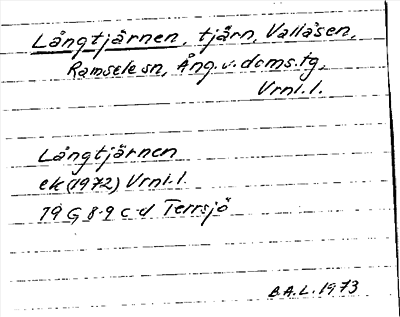 Långtjärnen, tjärn, Vallåsen,
Ramsele sn, Ång. v. doms.tg,
Vrnl.l.
Långtjärnen
ek (1972) Vrnl.l.
19 G 8-9 c-d Terrsjö
B.A.L. 1973